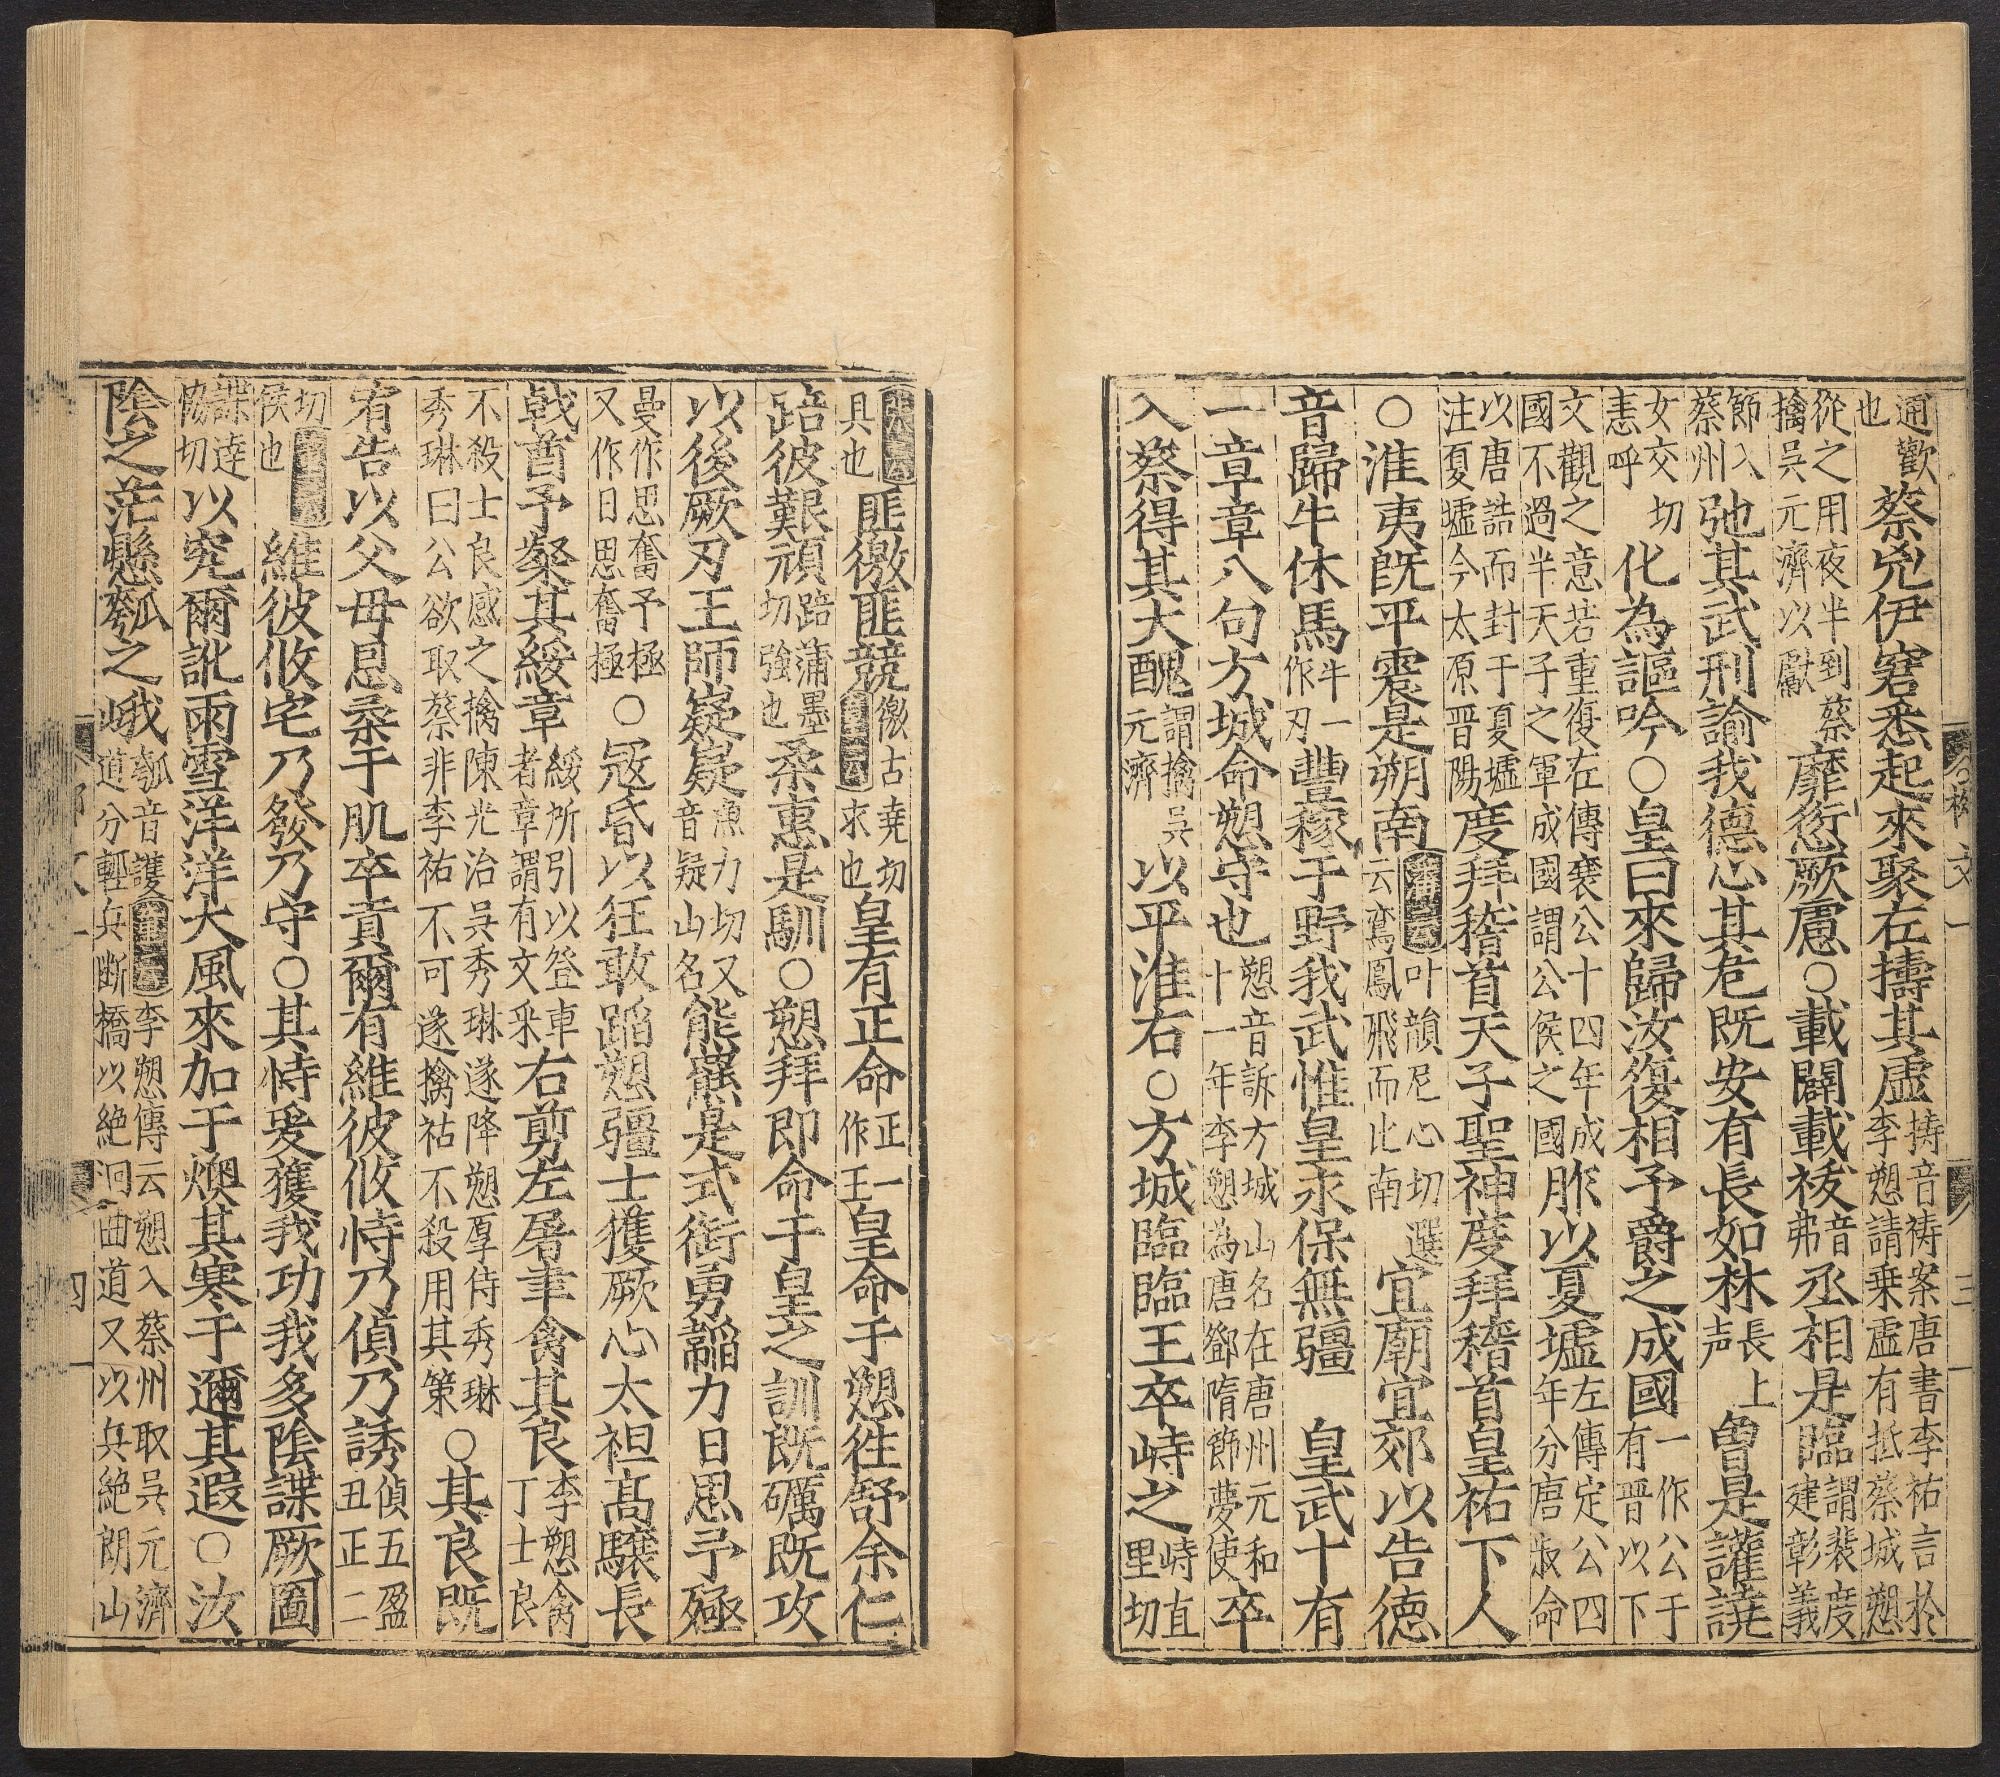 通歡也蔡兇伊窘悉起來聚左擣其虛擣音祷案唐書李祐言於李愬請乗虛有抵蔡城愬
從之用夜半到蔡擒吳元濟以獻靡愆厥慮○載闢載祓音弗丞相是臨謂裴度建彰義
節入蔡州弛其武刑諭我德心其危既安有長如林長上声曾是讙譊
女交切恚呼化為謳吟○皇曰來歸汝復相予爵之成國一作公于有晋以下
文觀之意若重復左傳襄公十四年成國不過半天子之軍成國謂公侯之國胙以夏墟左傳定公四年分唐叔命
以唐誥而封于夏墟注夏墟今太原晋陽度拜稽首天子聖神度拜稽首皇祐下人
○淮夷既平震是朔南叶韻尼心切選云鸞鳳飛而比南宜廟宜郊以告德
音歸牛休馬牛一作刃豐稼于野我武惟皇永保無疆　皇武十有
一章章八句方城命愬守也愬音訴方城山名在唐州元和十一年李愬為唐鄧隋節夢使卒
入蔡得其大醜謂擒吳元濟以平淮右○方城臨臨王卒峙之峙直里切
具也匪徼匪競徼古尭切求也皇有正命正一作王皇命于愬徃舒余仁
踣彼艱頑踣蒲墨切強也柔惠是馴○愬拜即命于皇之訓既礪既攻
以後厥刃王師嶷嶷魚力切又音疑山名熊羆是式銜勇韜力日思予殛
曼作思奮予極又作日思奮極○冦昏以狂敢蹈愬疆士獲厥心太袒髙驤長
戟酋予粲其綏章綏所引以登車者章謂有文采右剪左屠聿禽其良李愬禽丁士良
不殺士良感之擒陳光洽吳秀琳遂降愬厚侍秀琳秀琳曰公欲取蔡非李祐不可遂擒祜不殺用其策○其良既
宥告以父母恩柔于肌卒貢爾有維彼攸恃乃偵乃誘偵五盈丑正二
切侯也維彼攸宅乃發乃守○其恃爰獲我功我多陰諜厥圖
諜逹恊切以究爾訛雨雪洋洋大風來加于燠其寒于邇其遐○汝
陰之茫懸瓠之峨瓠音護李愬傳云愬入蔡州取吳元濟道分輕兵断橋以絶洄曲道又以兵絶朗山